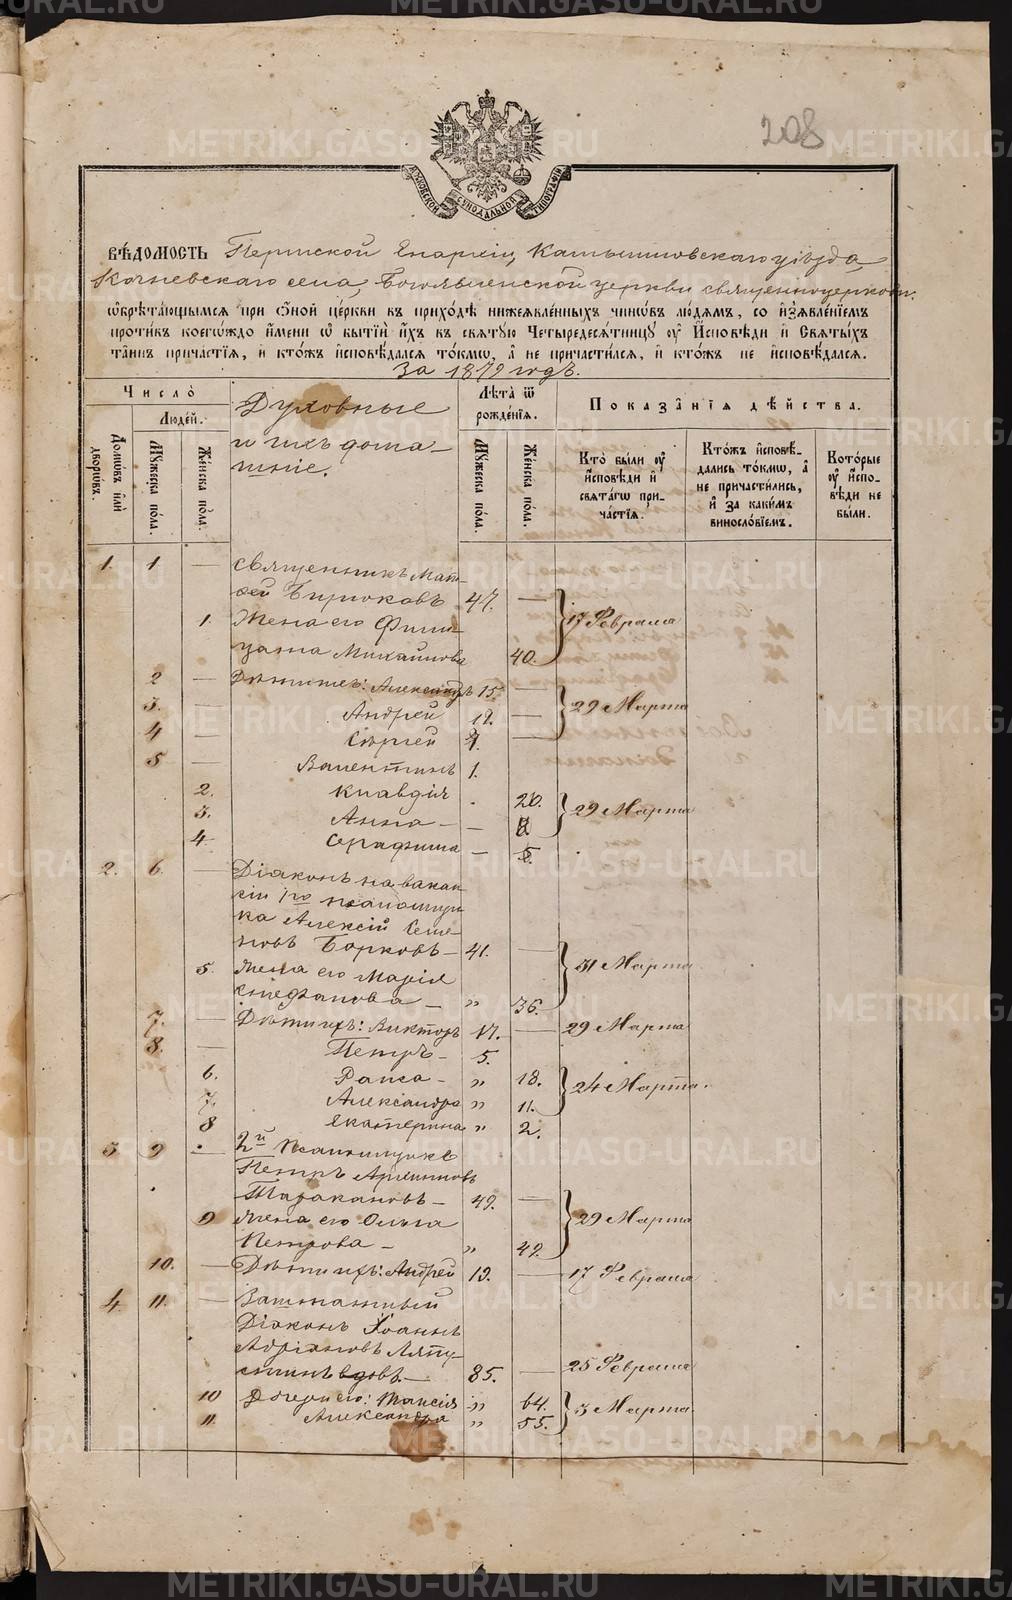 208
МОСКОВСКОЙ СѴНОДАЛЬНОЙ ТИПОГРАФІИ
ВѢДОМОСТЬ Пермской Епархіи, Камышловскаго уѣзда,
Кочневскаго села, Богоявленской церкви священноцерков.
ѡбрѣтающымсѧ при ѻной церкви въ приходѣ нижеѧвленныхъ чинѡвъ людѧмъ, со изъѧвленіемъ
противъ коегѡждо имени ѡ бытіи ихъ въ свѧтую Четыредесѧтницу оу Исповѣди и Свѧтыхъ
таинъ причастіѧ, и ктожъ исповѣдалсѧ токмѡ, а не причастилсѧ, и ктожъ не исповѣдалсѧ.
За 1879 годъ.
Число
Людей.
Домѡвъ или дворѡвъ.
Мужеска пола.
Женска пола.
Духовные
и ихъ дома-
шніе.
Лѣта ѿ рожденіѧ.
Мужеска пола.
Женска пола.
Показаніѧ дѣйства.
Кто были оу исповѣди и свѧтагѡ причастіѧ.
Ктожъ исповѣдались токмѡ, а не причастились, и за какимъ винословіемъ.
Которые оу исповѣди не были.
1. 1 — Священникъ Мат-
ѳей Бирюковъ 47. —
1. Жена его
Михайлова 40. 17 Февраля
2 — Дѣти ихъ: Александръ 15. —
3. — Андрей 12. — 29 Марта
4 — Сергей
5 — Валентинъ 1.
2. Клавдія 20.
3. Анна — — 29 Марта
4 Серафима — 5.
2. 6. — Діаконъ на вакан-
сіи псаломщи-
ка Алексій Семе-
новъ Борковъ — 41. —
5. Жена его Марія 31 Марта
Стефанова — „ 36.
7. — Дѣти ихъ: Викторъ 17. — 29 Марта
8. — Петръ — 5.
6. Раиса — „ 18. 24 Марта.
7. Александра „ 11.
8 Екатерина „ 2.
3 9 — 2й Псаломщикъ
Петръ
Таракановъ — 49. —
9 Жена его Ольга 29 Марта
Петрова — „ 42.
10. — Дѣти ихъ: Андрей 19. — 17 Февраля
4 11. — Заштатный
Діаконъ Іоаннъ
Адріановъ Ляпу-
стинъ вдовъ — 85. — 25 Февраля
10 Дочери его: Таисія „ 64. 3 Марта
11. Александра „ 55.
METRIKI.GASO-URAL.RU